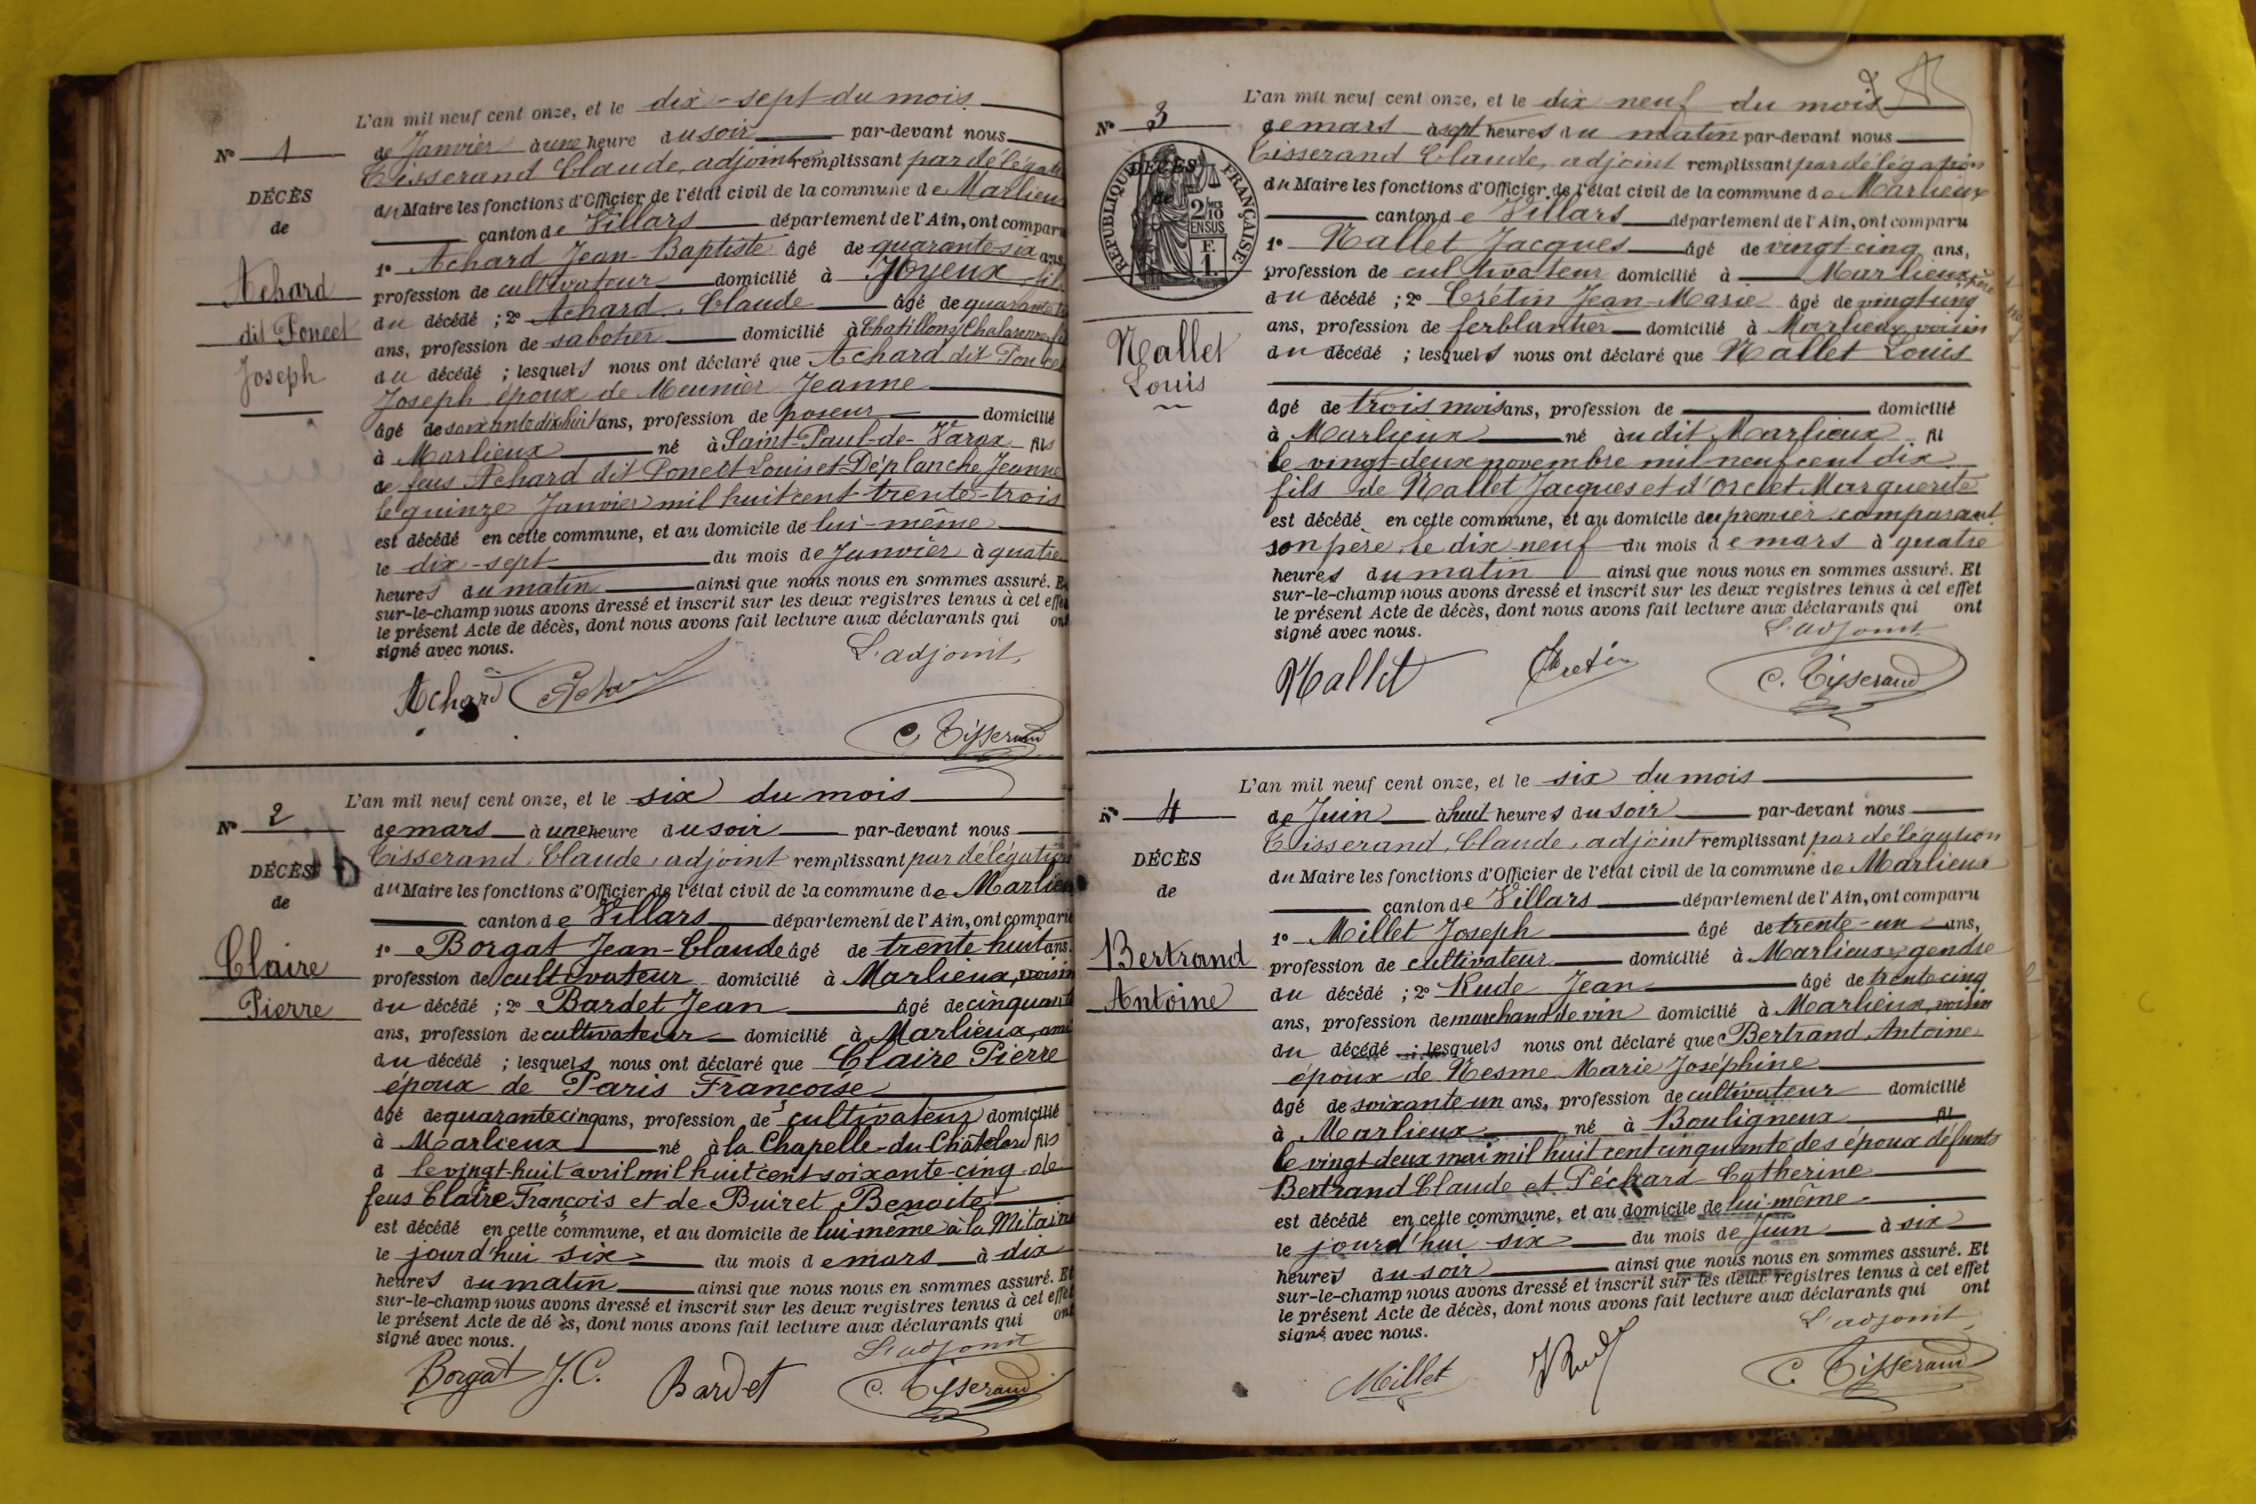 L'an mil neuf cent onze, et le dix-sept du mois
N° 1
de Janvier à une heure du soir par-devant nous
Tisserand Claude, adjoint remplissant par délégation
DÉCÈS
du Maire les fonctions d'Officier de l'état civil de la commune de Marlieux
de
canton de Villars département de l'Ain, ont comparu
1° Achard Jean-Baptiste âgé de quarante-six ans,
Achard
profession de cultivateur domicilié à Joyeux fils
dit Poncet
du décédé ; 2° Achard Claude âgé de quarante
Joseph
ans, profession de sabotier domicilié à Chatillon s/ Chalaronne
du décédé ; lesquels nous ont déclaré que Achard dit Poncet
Joseph époux de Meunier Jeanne
âgé de soixante dix huit ans, profession de poseur domicilié
à Marlieux né à Saint-Paul-de-Varax fils
de feus Achard dit Poncet Louis et Déplanche Jeanne
le quinze Janvier mil huit cent trente-trois
est décédé en cette commune, et au domicile de lui-même
le dix-sept du mois de Janvier à quatre
heures du matin ainsi que nous nous en sommes assuré. Et
sur-le-champ nous avons dressé et inscrit sur les deux registres tenus à cet effet
le présent Acte de décès, dont nous avons fait lecture aux déclarants qui ont
signé avec nous.
L'adjoint,
Achard
C. Tisserand
L'an mil neuf cent onze, et le six du mois
N° 2
de mars à une heure du soir par-devant nous
Tisserand Claude, adjoint remplissant par délégation
DÉCÈS
du Maire les fonctions d'Officier de l'état civil de la commune de Marlieux
de
canton de Villars département de l'Ain, ont comparu
1° Borgat Jean-Claude âgé de trente huit ans,
Claire
profession de cultivateur domicilié à Marlieux, voisin
Pierre
du décédé ; 2° Bardet Jean âgé de cinquante
ans, profession de cultivateur domicilié à Marlieux, ami
du décédé ; lesquels nous ont déclaré que Claire Pierre
époux de Paris Françoise
âgé de quarante cinq ans, profession de cultivateur domicilié
à Marlieux né à la Chapelle-du-Châtelard fils
d le vingt-huit avril mil huit cent soixante-cinq de
feus Claire François et de Buiret Benoite
est décédé en cette commune, et au domicile de lui même à la Mitaine
le jourd'hui six du mois de mars à dix
heures du matin ainsi que nous nous en sommes assuré. Et
sur-le-champ nous avons dressé et inscrit sur les deux registres tenus à cet effet
le présent Acte de dé ès, dont nous avons fait lecture aux déclarants qui ont
signé avec nous.
L'adjoint
Borgat J.C. Bardet C. Tisserand
2
L'an mil neuf cent onze, et le dix neuf du mois
N° 3
de mars à sept heures du matin par-devant nous
Tisserand Claude, adjoint remplissant par délégation
DÉCÈS
de
RÉPUBLIQUE FRANÇAISE
2/10 EN SUS
F. 1.
du Maire les fonctions d'Officier de l'état civil de la commune de Marlieux
canton de Villars département de l'Ain, ont comparu
1° Nallet Jacques âgé de vingt cinq ans,
profession de cultivateur domicilié à Marlieux, père
du décédé ; 2° Crétin Jean-Marie âgé de vingt cinq
ans, profession de ferblantier domicilié à Marlieux, voisin
Nallet
Louis
du décédé ; lesquels nous ont déclaré que Nallet Louis
âgé de trois mois ans, profession de domicilié
à Marlieux né au dit Marlieux fil
le vingt-deux novembre mil neuf cent dix
fils de Nallet Jacques et d'Orcet Marguerite
est décédé en cette commune, et au domicile du premier comparant
son père, le dix neuf du mois de mars à quatre
heures du matin ainsi que nous nous en sommes assuré. Et
sur-le-champ nous avons dressé et inscrit sur les deux registres tenus à cet effet
le présent Acte de décès, dont nous avons fait lecture aux déclarants qui ont
signé avec nous.
L'adjoint
Nallet Cretin C. Tisserand
L'an mil neuf cent onze, et le six du mois
N° 4
de Juin à huit heures du soir par-devant nous
Tisserand Claude, adjoint remplissant par délégation
DÉCÈS
du Maire les fonctions d'Officier de l'état civil de la commune de Marlieux
de
canton de Villars département de l'Ain, ont comparu
1° Millet Joseph âgé de trente-un ans,
Bertrand
profession de cultivateur domicilié à Marlieux, gendre
Antoine
du décédé ; 2° Rude Jean âgé de trente cinq
ans, profession de marchand de vin domicilié à Marlieux, voisin
du décédé ; lesquels nous ont déclaré que Bertrand Antoine
époux de Nesme Marie Joséphine
âgé de soixante un ans, profession de cultivateur domicilié
à Marlieux né à Bouligneux fil
le vingt deux mai mil huit cent cinquante des époux défunts
Bertrand Claude et Péchard Catherine
est décédé en cette commune, et au domicile de lui-même
le jourd'hui six du mois de Juin à six
heures du soir ainsi que nous nous en sommes assuré. Et
sur-le-champ nous avons dressé et inscrit sur les deux registres tenus à cet effet
le présent Acte de décès, dont nous avons fait lecture aux déclarants qui ont
signé avec nous.
L'adjoint
Millet J Rude C. Tisserand